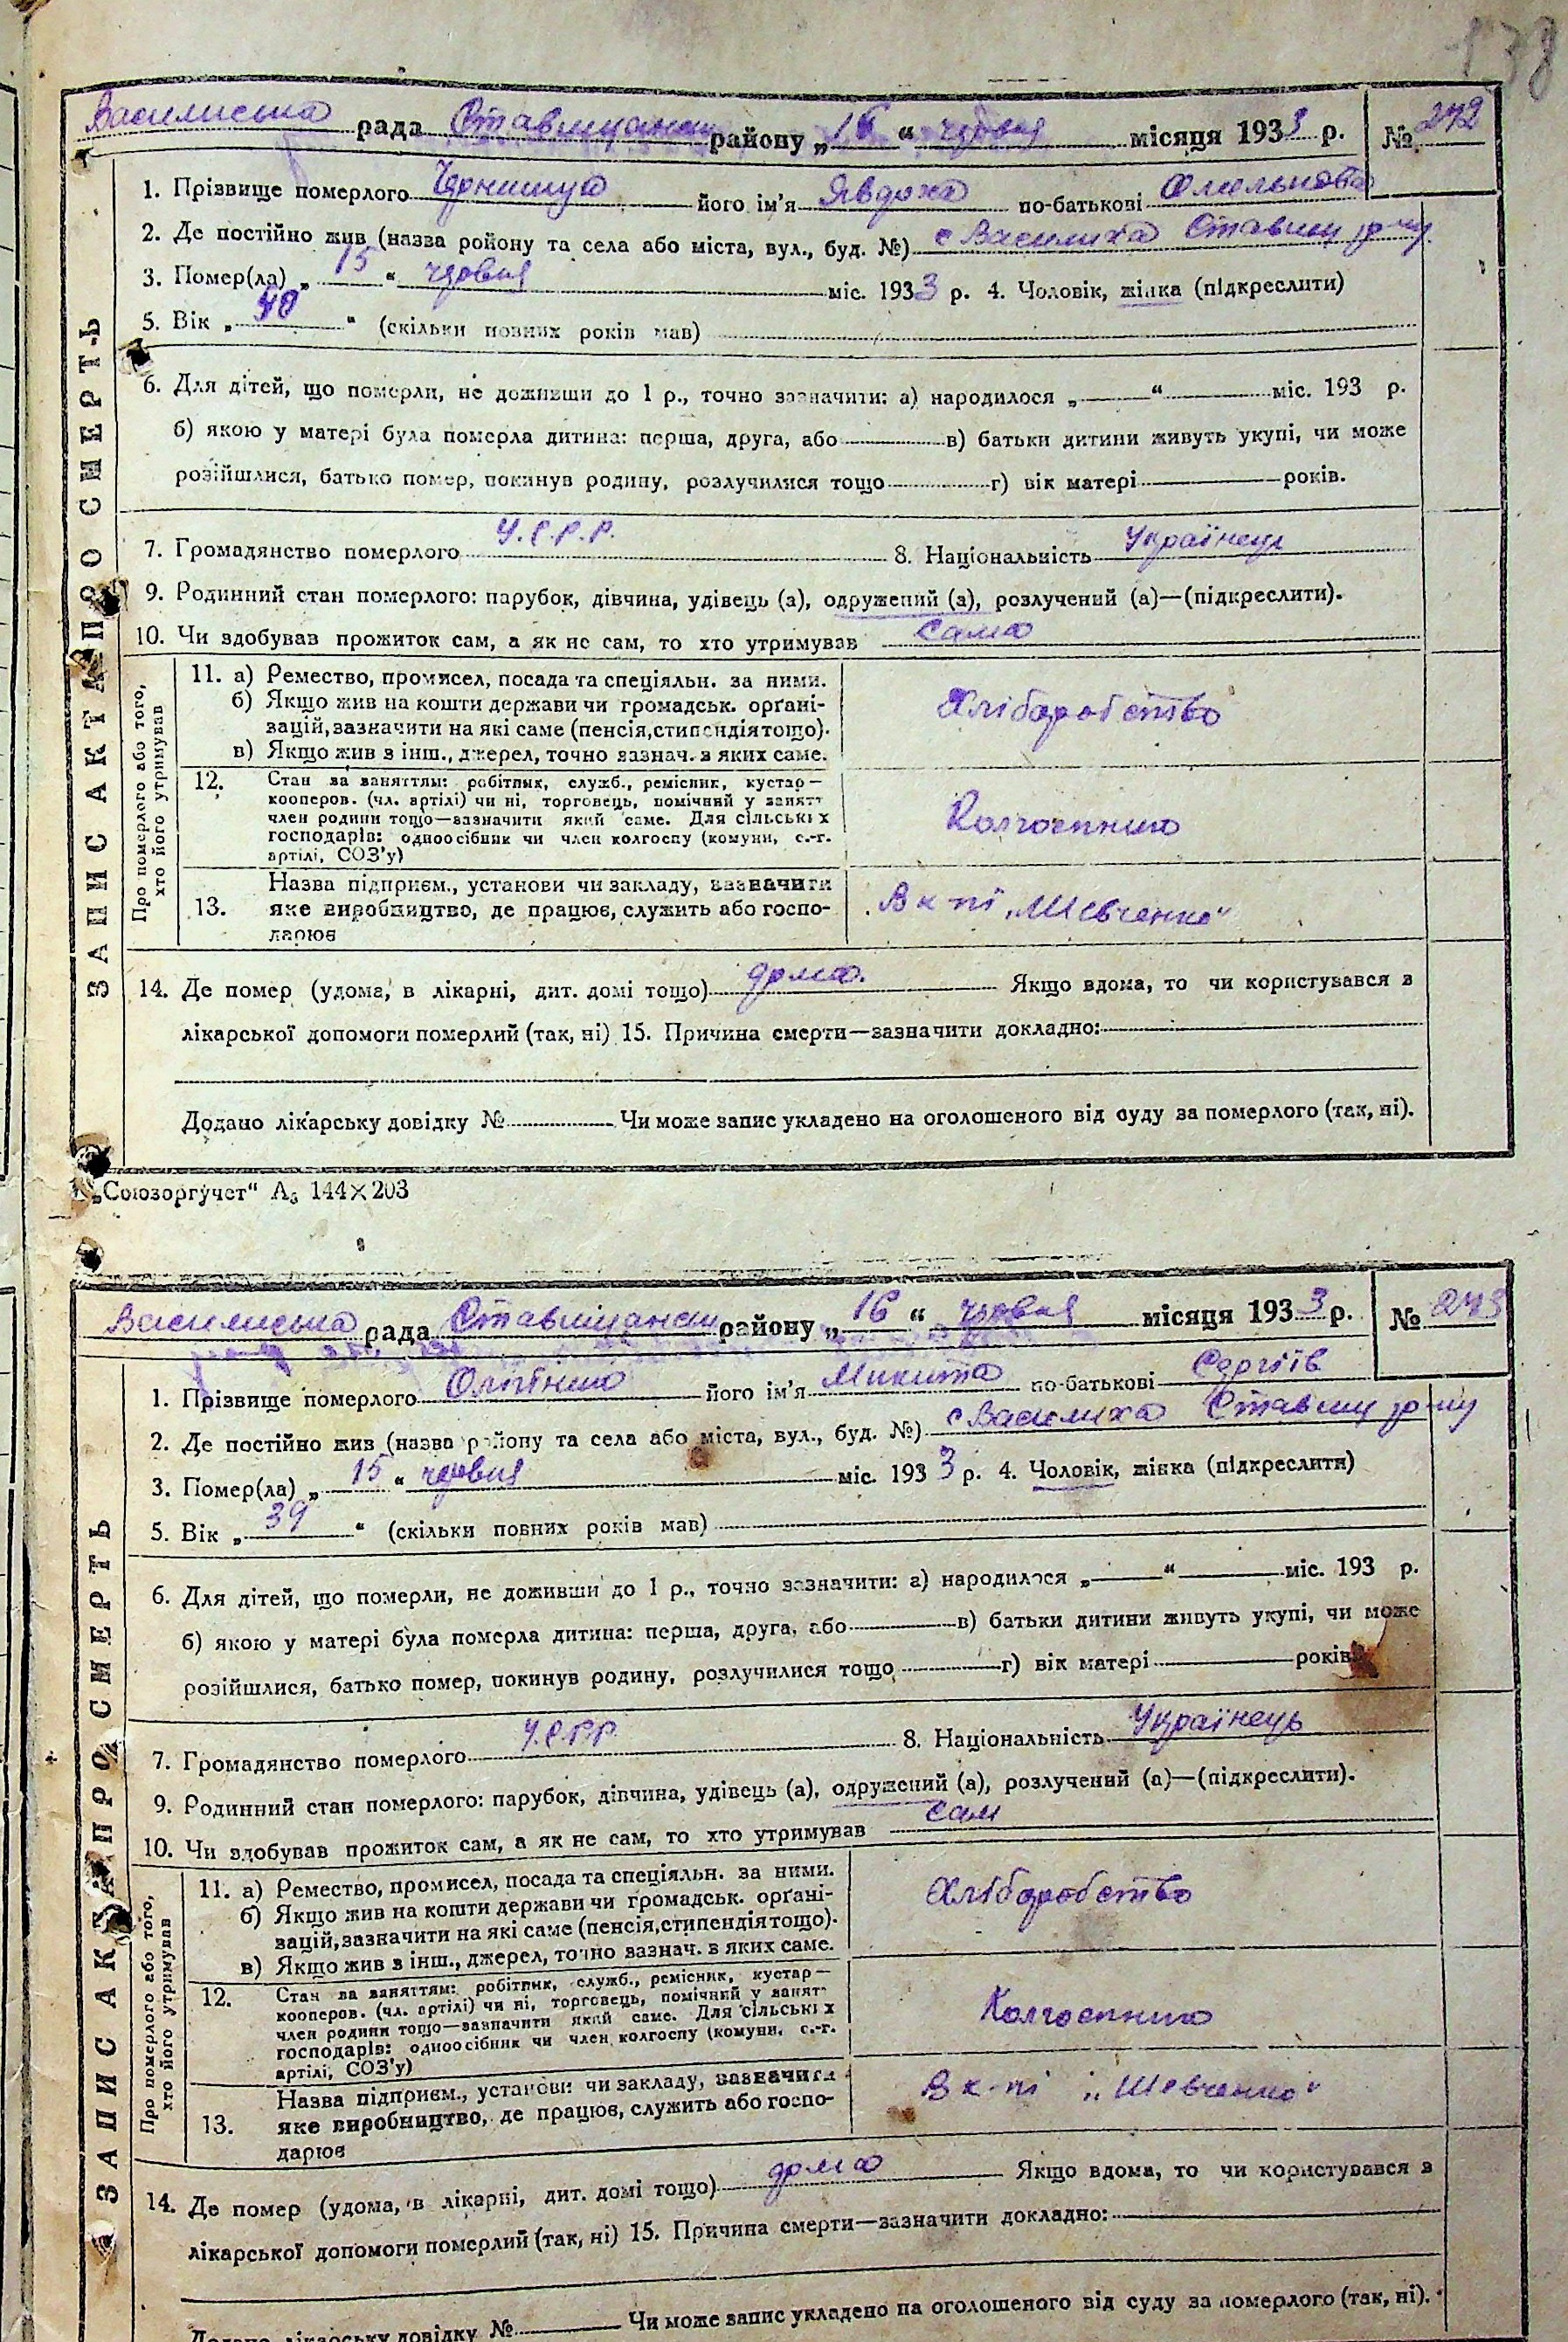 138
Василиська рада Ставищанськ району „ 16 “ червня місяця 1933 р. № 242
1. Прізвище померлого його ім'я Явдоха по-батькові Омельковна
2. Де постійно жив (назва ройону та села або міста, вул., буд. №) с Василиха Ставищ р-ну
3. Помер(ла) „ 15 “ червня міс. 1933 р. 4. Чоловік, жінка (підкреслити)
5. Вік „ “ (скільки повних років мав)
6. Для дітей, що померли, не доживши до 1 р., точно зазначити: а) народилося „ “ міс. 193 р.
б) якою у матері була померла дитина: перша, друга, або в) батьки дитини живуть укупі, чи може
розійшлися, батько помер, покинув родину, розлучилися тощо г) вік матері років.
7. Громадянство померлого У.С.Р.Р. 8. Національність Українець
9. Родинний стан померлого: парубок, дівчина, удівець (а), одружений (а), розлучений (а)—(підкреслити).
10. Чи здобував прожиток сам, а як не сам, то хто утримував сама
ЗАПИС АКТА ПРО СМЕРТЬ
Про померлого або того,
хто його утримував
11. а) Ремество, промисел, посада та спеціяльн. за ними.
б) Якщо жив на кошти держави чи громадськ. орґані-
зацій, зазначити на які саме (пенсія, стипендія тощо).
в) Якщо жив з інш., джерел, точно зазнач. з яких саме.
Хліборобство
12. Стан за заняттям: робітник, служб., ремісник, кустар—
кооперов. (чл. артілі) чи ні, торговець, помічний у занятт
член родини тощо—зазначити який саме. Для сільських
господарів: одноосібник чи член колгоспу (комуни, с.-г.
артілі, СОЗ'у)
Колгоспника
Назва підприєм., установи чи закладу, зазначити
13. яке виробництво, де працює, служить або госпо-
дарює
В к-пі „Шевченка“
14. Де помер (удома, в лікарні, дит. домі тощо) дома. Якщо вдома, то чи користувався з
лікарської допомоги померлий (так, ні) 15. Причина смерти—зазначити докладно:
Додано лікарську довідку № Чи може запис укладено на оголошеного від суду за померлого (так, ні).
„Союзоргучет“ А₅ 144×203
Василиська рада Ставищанськ району „ 16 “ червня місяця 1933 р. № 243
1. Прізвище померлого Олійника його ім'я Микита по-батькові Сергіїв
2. Де постійно жив (назва району та села або міста, вул., буд. №) с Василиха Ставищ р-ну
3. Помер(ла) „ 15 “ червня міс. 1933 р. 4. Чоловік, жінка (підкреслити)
5. Вік „ 39 “ (скільки повних років мав)
6. Для дітей, що померли, не доживши до 1 р., точно зазначити: а) народилося „ “ міс. 193 р.
б) якою у матері була померла дитина: перша, друга, або в) батьки дитини живуть укупі, чи може
розійшлися, батько помер, покинув родину, розлучилися тощо г) вік матері років
7. Громадянство померлого У.С.Р.Р. 8. Національність Українець
9. Родинний стан померлого: парубок, дівчина, удівець (а), одружений (а), розлучений (а)—(підкреслити).
10. Чи здобував прожиток сам, а як не сам, то хто утримував сам
ЗАПИС АКТА ПРО СМЕРТЬ
Про померлого або того,
хто його утримував
11. а) Ремество, промисел, посада та спеціяльн. за ними.
б) Якщо жив на кошти держави чи громадськ. орґані-
зацій, зазначити на які саме (пенсія, стипендія тощо).
в) Якщо жив з інш., джерел, точно зазнач. в яких саме.
Хліборобство
12. Стан за заняттям: робітник, служб., ремісник, кустар—
кооперов. (чл. артілі) чи ні, торговець, помічний у занят
член родини тощо—зазначити який саме. Для сільських
господарів: одноосібник чи член колгоспу (комуни, с.-г.
артілі, СОЗ'у)
Колгоспника
Назва підприєм., установи чи закладу, зазначити
13. яке виробництво, де працює, служить або госпо-
дарює
В к-пі „Шевченка“
14. Де помер (удома, в лікарні, дит. домі тощо) дома Якщо вдома, то чи користувався з
лікарської допомоги померлий (так, ні) 15. Причина смерти—зазначити докладно:
Додано лікарську довідку № Чи може запис укладено на оголошеного від суду за померлого (так, ні).